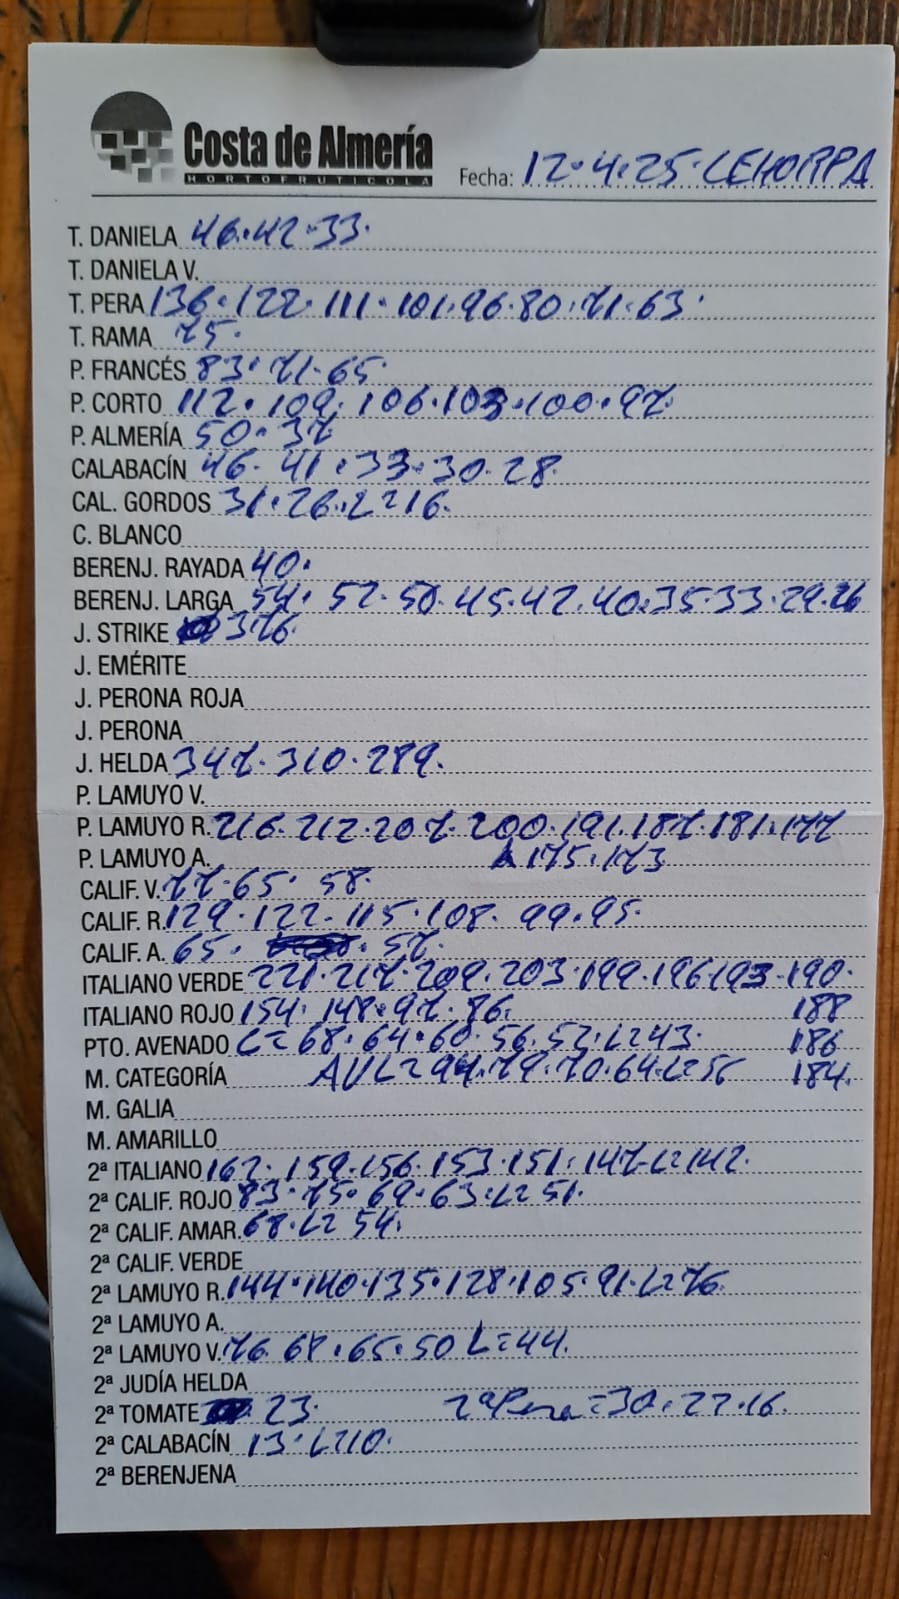 Costa de Almería
HORTOFRUTICOLA
Fecha: 12.4.25. CEHORPA
T. DANIELA 46.42.33.
T. DANIELA V.
T. PERA 136.122.111.101.96.80.71.63.
T. RAMA 75.
P. FRANCÉS 83.71.65.
P. CORTO 112.109.106.103.100.97
P. ALMERÍA 50.37
CALABACÍN 46.41.33.30.28.
CAL. GORDOS 31.26.L=16.
C. BLANCO
BERENJ. RAYADA 40.
BERENJ. LARGA 54.52.50.45.42.40.35.33.29.26
J. STRIKE 376.
J. EMÉRITE
J. PERONA ROJA
J. PERONA
J. HELDA 347.310.289.
P. LAMUYO V.
P. LAMUYO R. 216.212.207.200.191.187.181.177
P. LAMUYO A. 175.173
CALIF. V. 77.65.58.
CALIF. R. 129.122.115.108.99.95.
CALIF. A. 65.57.
ITALIANO VERDE 221.217.209.203.199.196.193.190.
ITALIANO ROJO 154.148.97.86. 188
PTO. AVENADO C=68.64.60.56.52.L=43. 186
M. CATEGORÍA AVL=94.79.70.64.L=56 184.
M. GALIA
M. AMARILLO
2ª ITALIANO 162.159.156.153.151.147.L=142.
2ª CALIF. ROJO 83.75.69.63.L=51.
2ª CALIF. AMAR. 68.L=54.
2ª CALIF. VERDE
2ª LAMUYO R. 144.140.135.128.105.91.L=76
2ª LAMUYO A.
2ª LAMUYO V. 76.68.65.50 L=44.
2ª JUDÍA HELDA
2ª TOMATE 23. 2ª Pera=30.22.16.
2ª CALABACÍN 13.L=10.
2ª BERENJENA